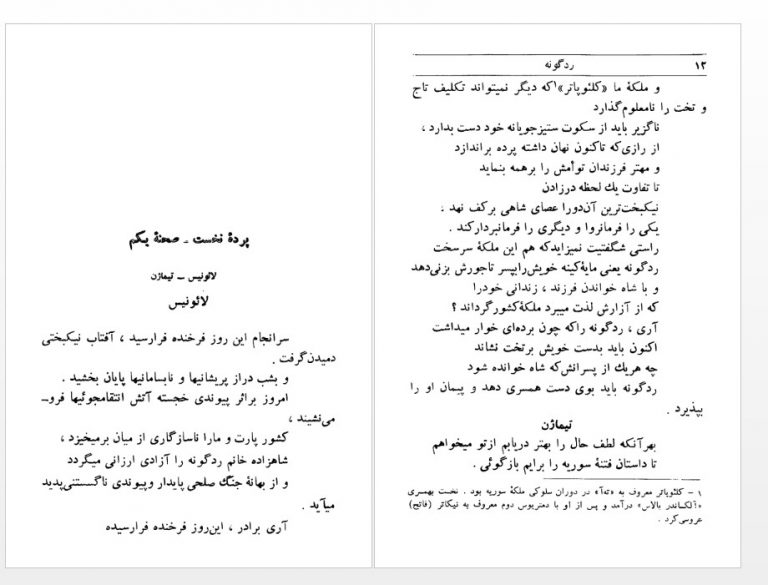 پردهٔ نخست - صحنهٔ یکم
لائونیس - تیماژن
لائونیس
سرانجام این روز فرخنده فرارسید ، آفتاب نیکبختی
دمیدن‌گرفت .
و بشب دراز پریشانیها و نابسامانیها پایان بخشید .
امروز براثر پیوندی خجسته آتش انتقامجوئیها فرو-
می‌نشیند ،
کشور پارت و مارا ناسازگاری از میان برمیخیزد ،
شاهزاده خانم ردگونه را آزادی ارزانی میگردد
و از بهانهٔ جنگ صلحی پایدار و پیوندی ناگسستنی‌پدید
میآید .
آری برادر ، این‌روز فرخنده فرارسیده
۱۲ ردگونه
و ملکهٔ ما «کلئوپاتر»۱ که دیگر نمیتواند تکلیف تاج
و تخت را نامعلوم‌گذارد
ناگزیر باید از سکوت ستیزجویانه خود دست بدارد ،
از رازی‌که تاکنون نهان داشته پرده براندازد
و مهتر فرزندان توأمش را برهمه بنماید
تا تفاوت یك لحظه درزادن
نیکبخت‌ترین آن‌دورا عصای شاهی برکف نهد .
یکی را فرمانروا و دیگری را فرمانبردارکند .
راستی شگفتیت نمیزایدکه هم این ملکهٔ سرسخت
ردگونه یعنی مایهٔ‌کینه خویش‌رابپسر تاجورش بزنی‌دهد
و با شاه خواندن فرزند ، زندانی خودرا
که از آزارش لذت میبرد ملکهٔ کشورگرداند ؟
آری ، ردگونه راکه چون برده‌ای خوار میداشت
اکنون باید بدست خویش برتخت نشاند
چه هریك از پسرانش‌که شاه خوانده شود
ردگونه باید بوی دست همسری دهد و پیمان او را
بپذیرد .
تیماژن
بهرآنکه لطف حال را بهتر دریابم ازتو میخواهم
تا داستان فتنهٔ سوریه را برایم بازگوئی .
۱ - کلئوپاتر معروف به «ته‌آ» در دوران سلوکی ملکهٔ سوریه بود . نخست بهمسری
«آلکساندر بالاس» درآمد و پس از او با دمتریوس دوم معروف به نیکاتر (فاتح)
عروسی‌کرد .